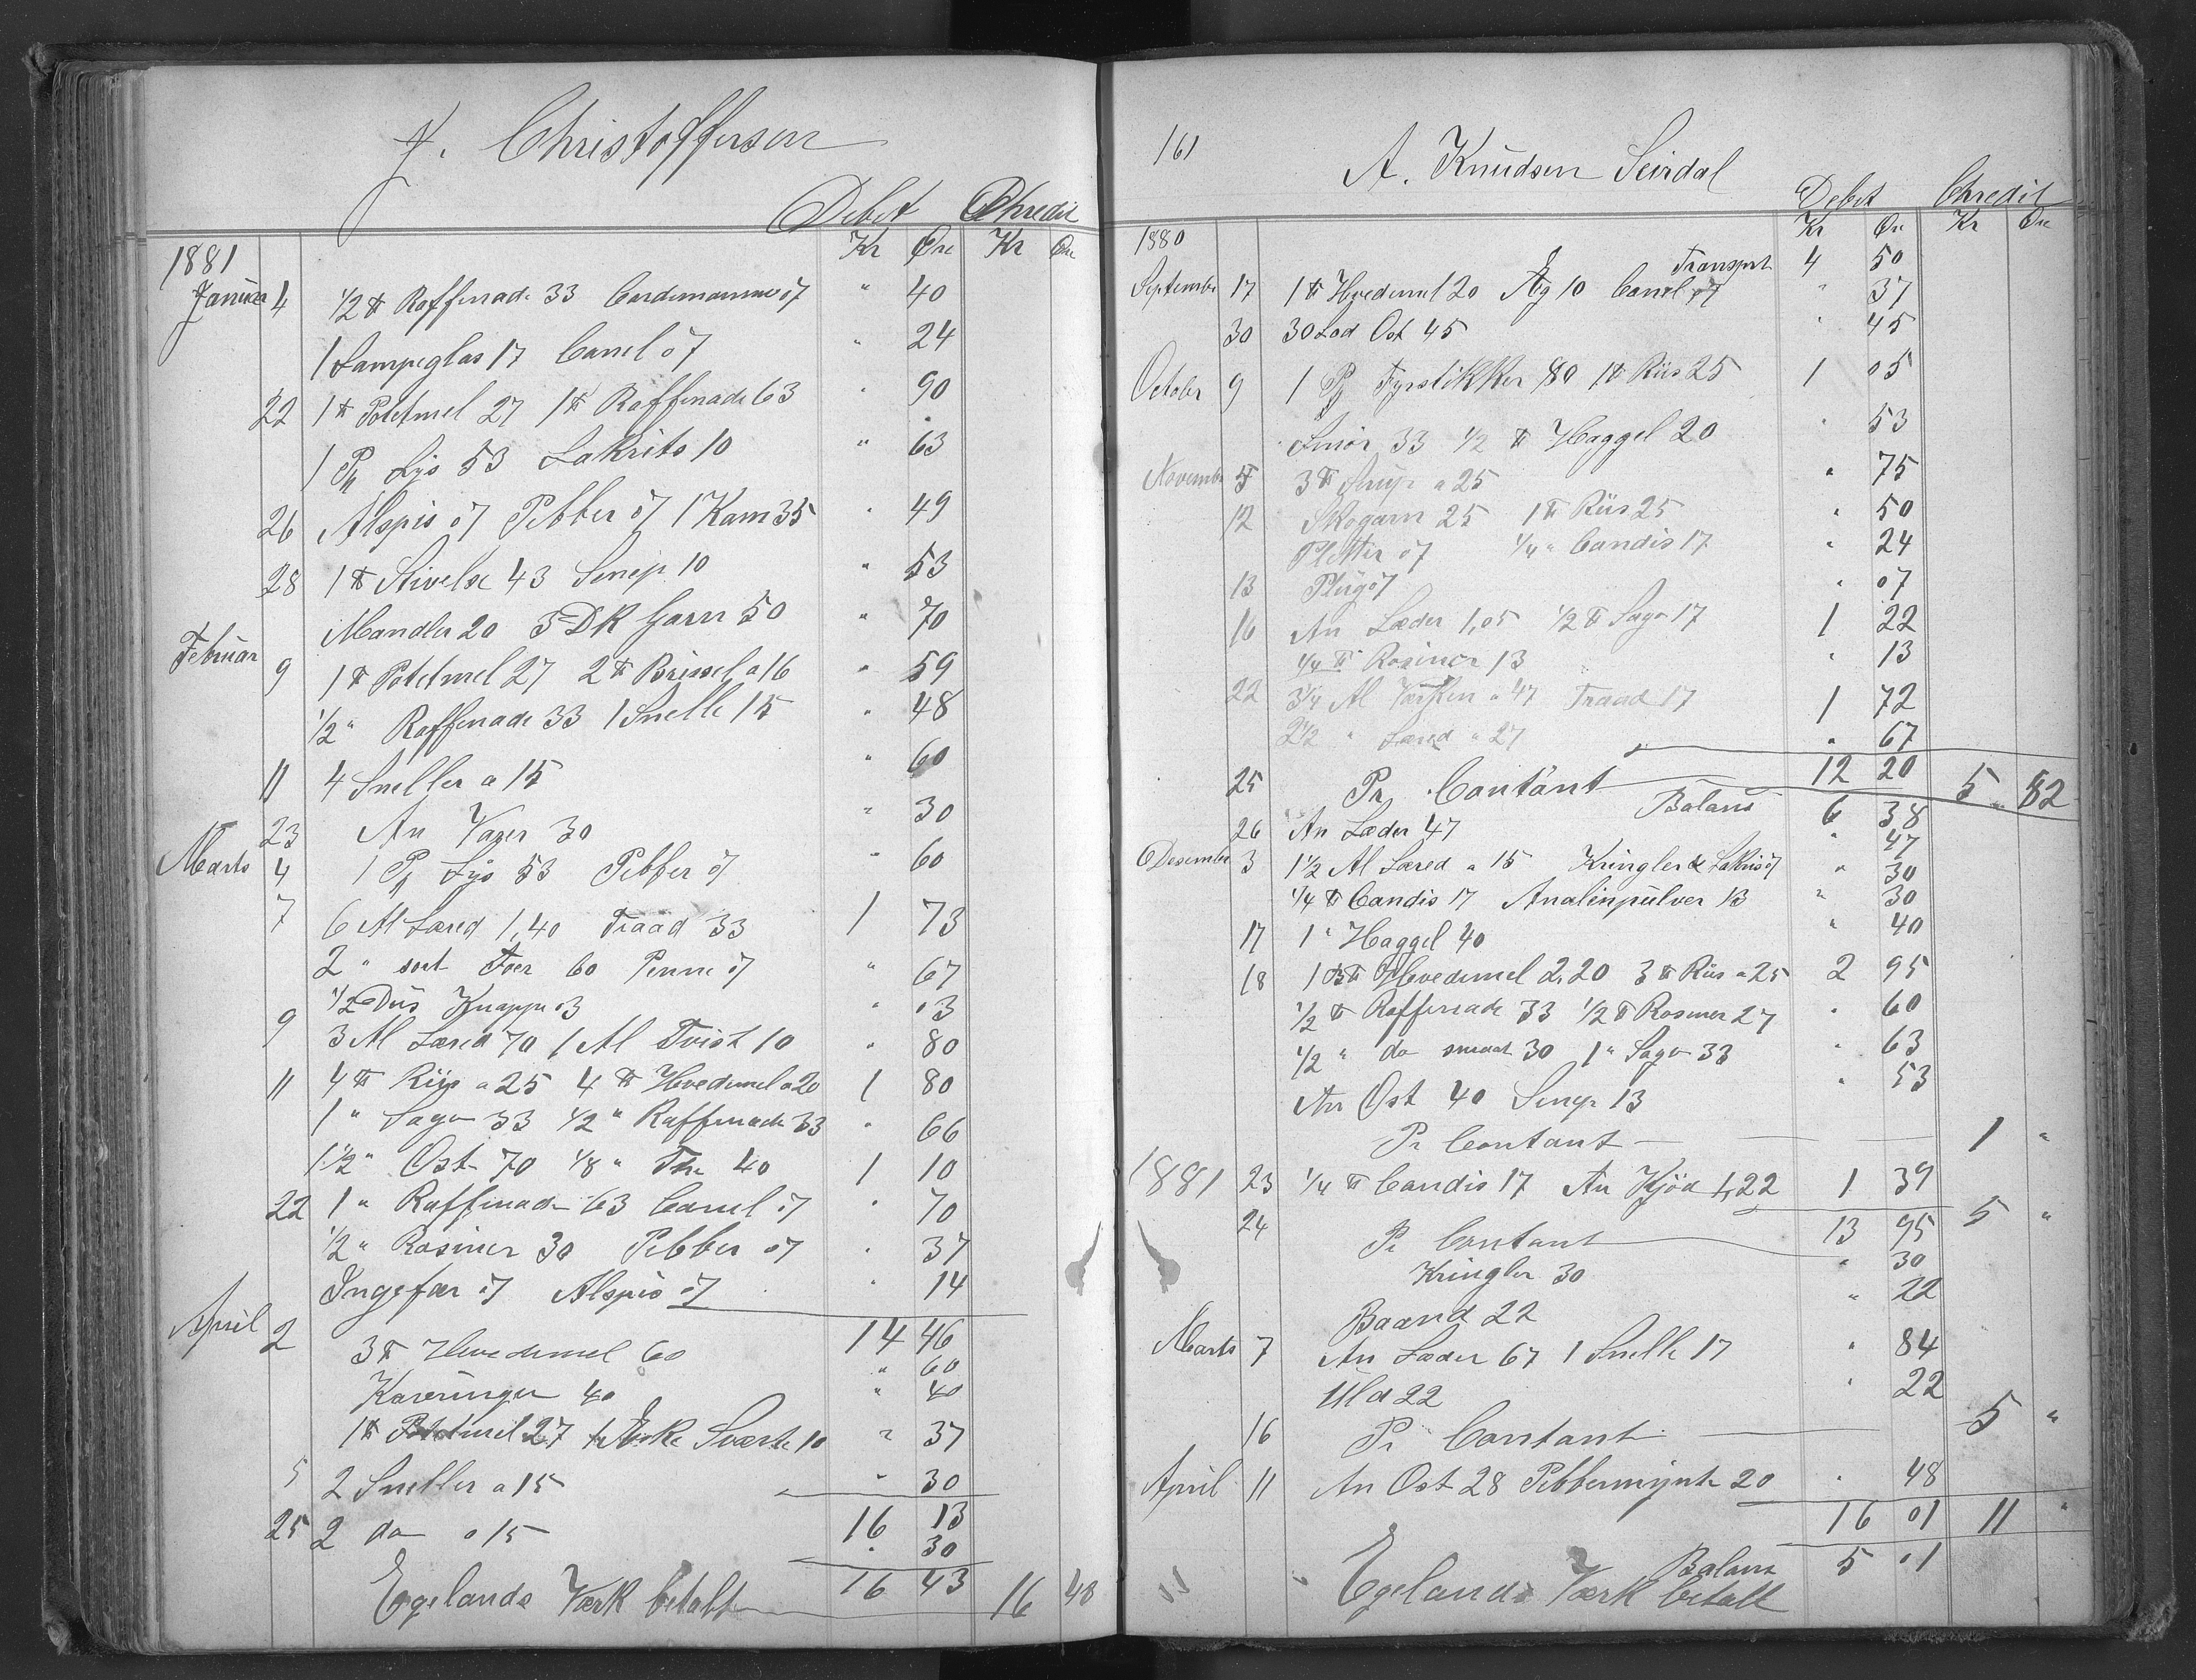 J. Christoffersen
Debet Chredit
Kr Øre Kr Øre
1881
Januar 4 1/2 ℔ Raffinade 33 Cardemomme 07 " 40
1 Lampeglas 17 Canel 07 " 24
22 1 ℔ Potetmel 27 1 ℔ Raffinade 63 " 90
1 Pk Lys 53 Lakrits 10 " 63
26 Alspis 07 Pebber 07 1 Kam 35 " 49
28 1 ℔ Stivelse 43 Senep 10 " 53
Mandler 20 5 DK Garn 50 " 70
Februar 9 1 ℔ Potetmel 27 2 ℔ Brissel a 16 " 59
1/2 " Raffinade 33 1 Snelle 15 " 48
11 4 Sneller a 15 " 60
23 An Varer 30 " 30
Marts 4 1 Pk Lys 53 Pebber 07 " 60
7 6 Al Læred 1,40 Traad 33 1 73
2 " sort Foer 60 Penne 07 " 67
1/2 Dus Knapper 03 " 03
9 3 Al Læred 70 1 Al Tvist 10 " 80
11 4 ℔ Riis a 25 4 ℔ Hvedemel a 20 1 80
1 " Sago 33 1/2 " Raffinade 33 " 66
1 1/2 " Ost 70 1/8 " The 40 1 10
22 1 " Raffinade 63 Canel 07 " 70
1/2 " Rosiner 30 Pebber 07 " 37
Ingefær 07 Alspis 07 " 14
April 2 14 46
3 ℔ Hvedemel 60 " 60
Kavringer 40 " 40
1 ℔ Potetmel 27 1 Æske Sværte 10 " 37
5 2 Sneller a 15 " 30
16 13
25 2 do a 15 " 30
16 43
Egelands Værk betalt 16 43
161
A. Knudsen Seirdal
Debet Chredit
Kr Øre Kr Øre
1880
Transport 4 50
September 17 1 ℔ Hvedemel 20 Æg 10 Canel 07 " 37
30 30 Lod Ost 45 " 45
October 9 1 Pk Fyrstikker 80 1 ℔ Riis 25 1 05
Smör 33 1/2 ℔ Haggel 20 " 53
November 5 3 ℔ Sirup a 25 " 75
12 Skogarn 25 1 ℔ Riis 25 " 50
Pletter 07 1/4 " Candis 17 " 24
13 Plüg 07 " 07
16 An Læder 1,05 1/2 ℔ Sago 17 1 22
1/4 ℔ Rosiner 13 " 13
22 3 1/4 Al Værken a 47 Traad 17 1 72
2 1/2 " Læred a 27 " 67
12 20
25 Pr Contant 5 82
Balans 6 38
26 An Læder 47 " 47
Desember 3 1 1/2 Al Læred a 15 Kringler & Lakris 07 " 30
1/4 ℔ Candis 17 Analinpulver 13 " 30
17 1 " Haggel 40 " 40
18 1 B℔ Hvedemel 2.20 3 ℔ Riis a 25 2 95
1/2 ℔ Raffinade 33 1/2 ℔ Rosiner 27 " 60
1/2 " do smaat 30 1 " Sago 33 " 63
An Ost 40 Senep 13 " 53
Pr Contant 1 "
1881 23 1/4 ℔ Candis 17 An Kjöd 1,22 1 39
24 Pr Contant 13 95 5 "
Kringler 30 " 30
Baand 22 " 22
Marts 7 An Læder 67 1 Snelle 17 " 84
Uld 22 " 22
16 Pr Contant 5 "
April 11 An Ost 28 Pebbermynte 20 " 48
16 01 11 "
Balans 5 01
Egelands Værk betalt